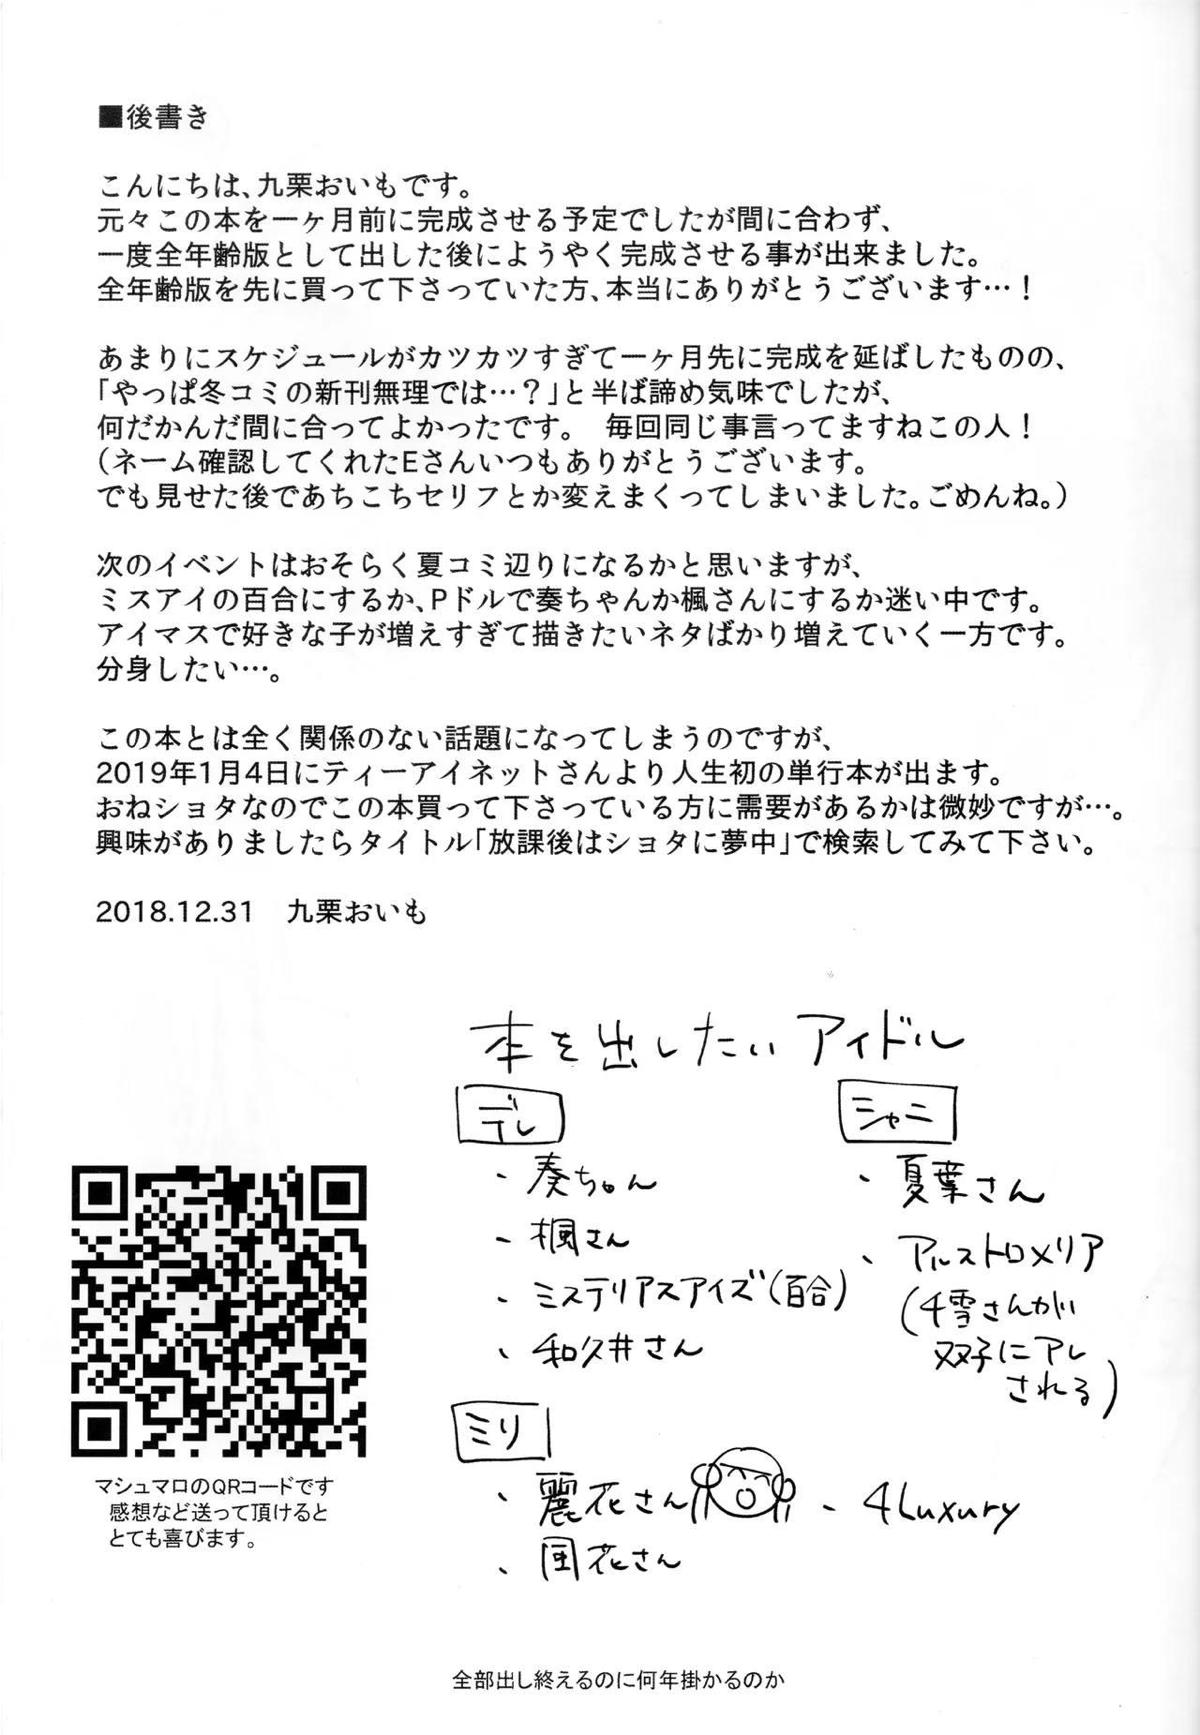 ■後書き
こんにちは、九栗おいもです。
元々この本を一ヶ月前に完成させる予定でしたが間に合わず、
一度全年齢版として出した後にようやく完成させる事が出来ました。
全年齢版を先に買って下さっていた方、本当にありがとうございます…！
あまりにスケジュールがカツカツすぎて一ヶ月先に完成を延ばしたものの、
「やっぱ冬コミの新刊無理では…？」と半ば諦め気味でしたが、
何だかんだ間に合ってよかったです。　毎回同じ事言ってますねこの人！
（ネーム確認してくれたEさんいつもありがとうございます。
でも見せた後であちこちセリフとか変えまくってしまいました。ごめんね。）
次のイベントはおそらく夏コミ辺りになるかと思いますが、
ミスアイの百合にするか、Pドルで奏ちゃんか楓さんにするか迷い中です。
アイマスで好きな子が増えすぎて描きたいネタばかり増えていく一方です。
分身したい…。
この本とは全く関係のない話題になってしまうのですが、
2019年1月4日にティーアイネットさんより人生初の単行本が出ます。
おねショタなのでこの本買って下さっている方に需要があるかは微妙ですが…。
興味がありましたらタイトル「放課後はショタに夢中」で検索してみて下さい。
2018.12.31　九栗おいも
本を出したいアイドル
デレ
・奏ちゃん
・楓さん
・ミステリアスアイズ（百合）
・和久井さん
シャニ
・夏葉さん
・アルストロメリア
（千雪さんが
双子にアレ
される）
ミリ
・麗花さん
・4Luxury
・風花さん
マシュマロのQRコードです
感想など送って頂けると
とても喜びます。
全部出し終えるのに何年掛かるのか